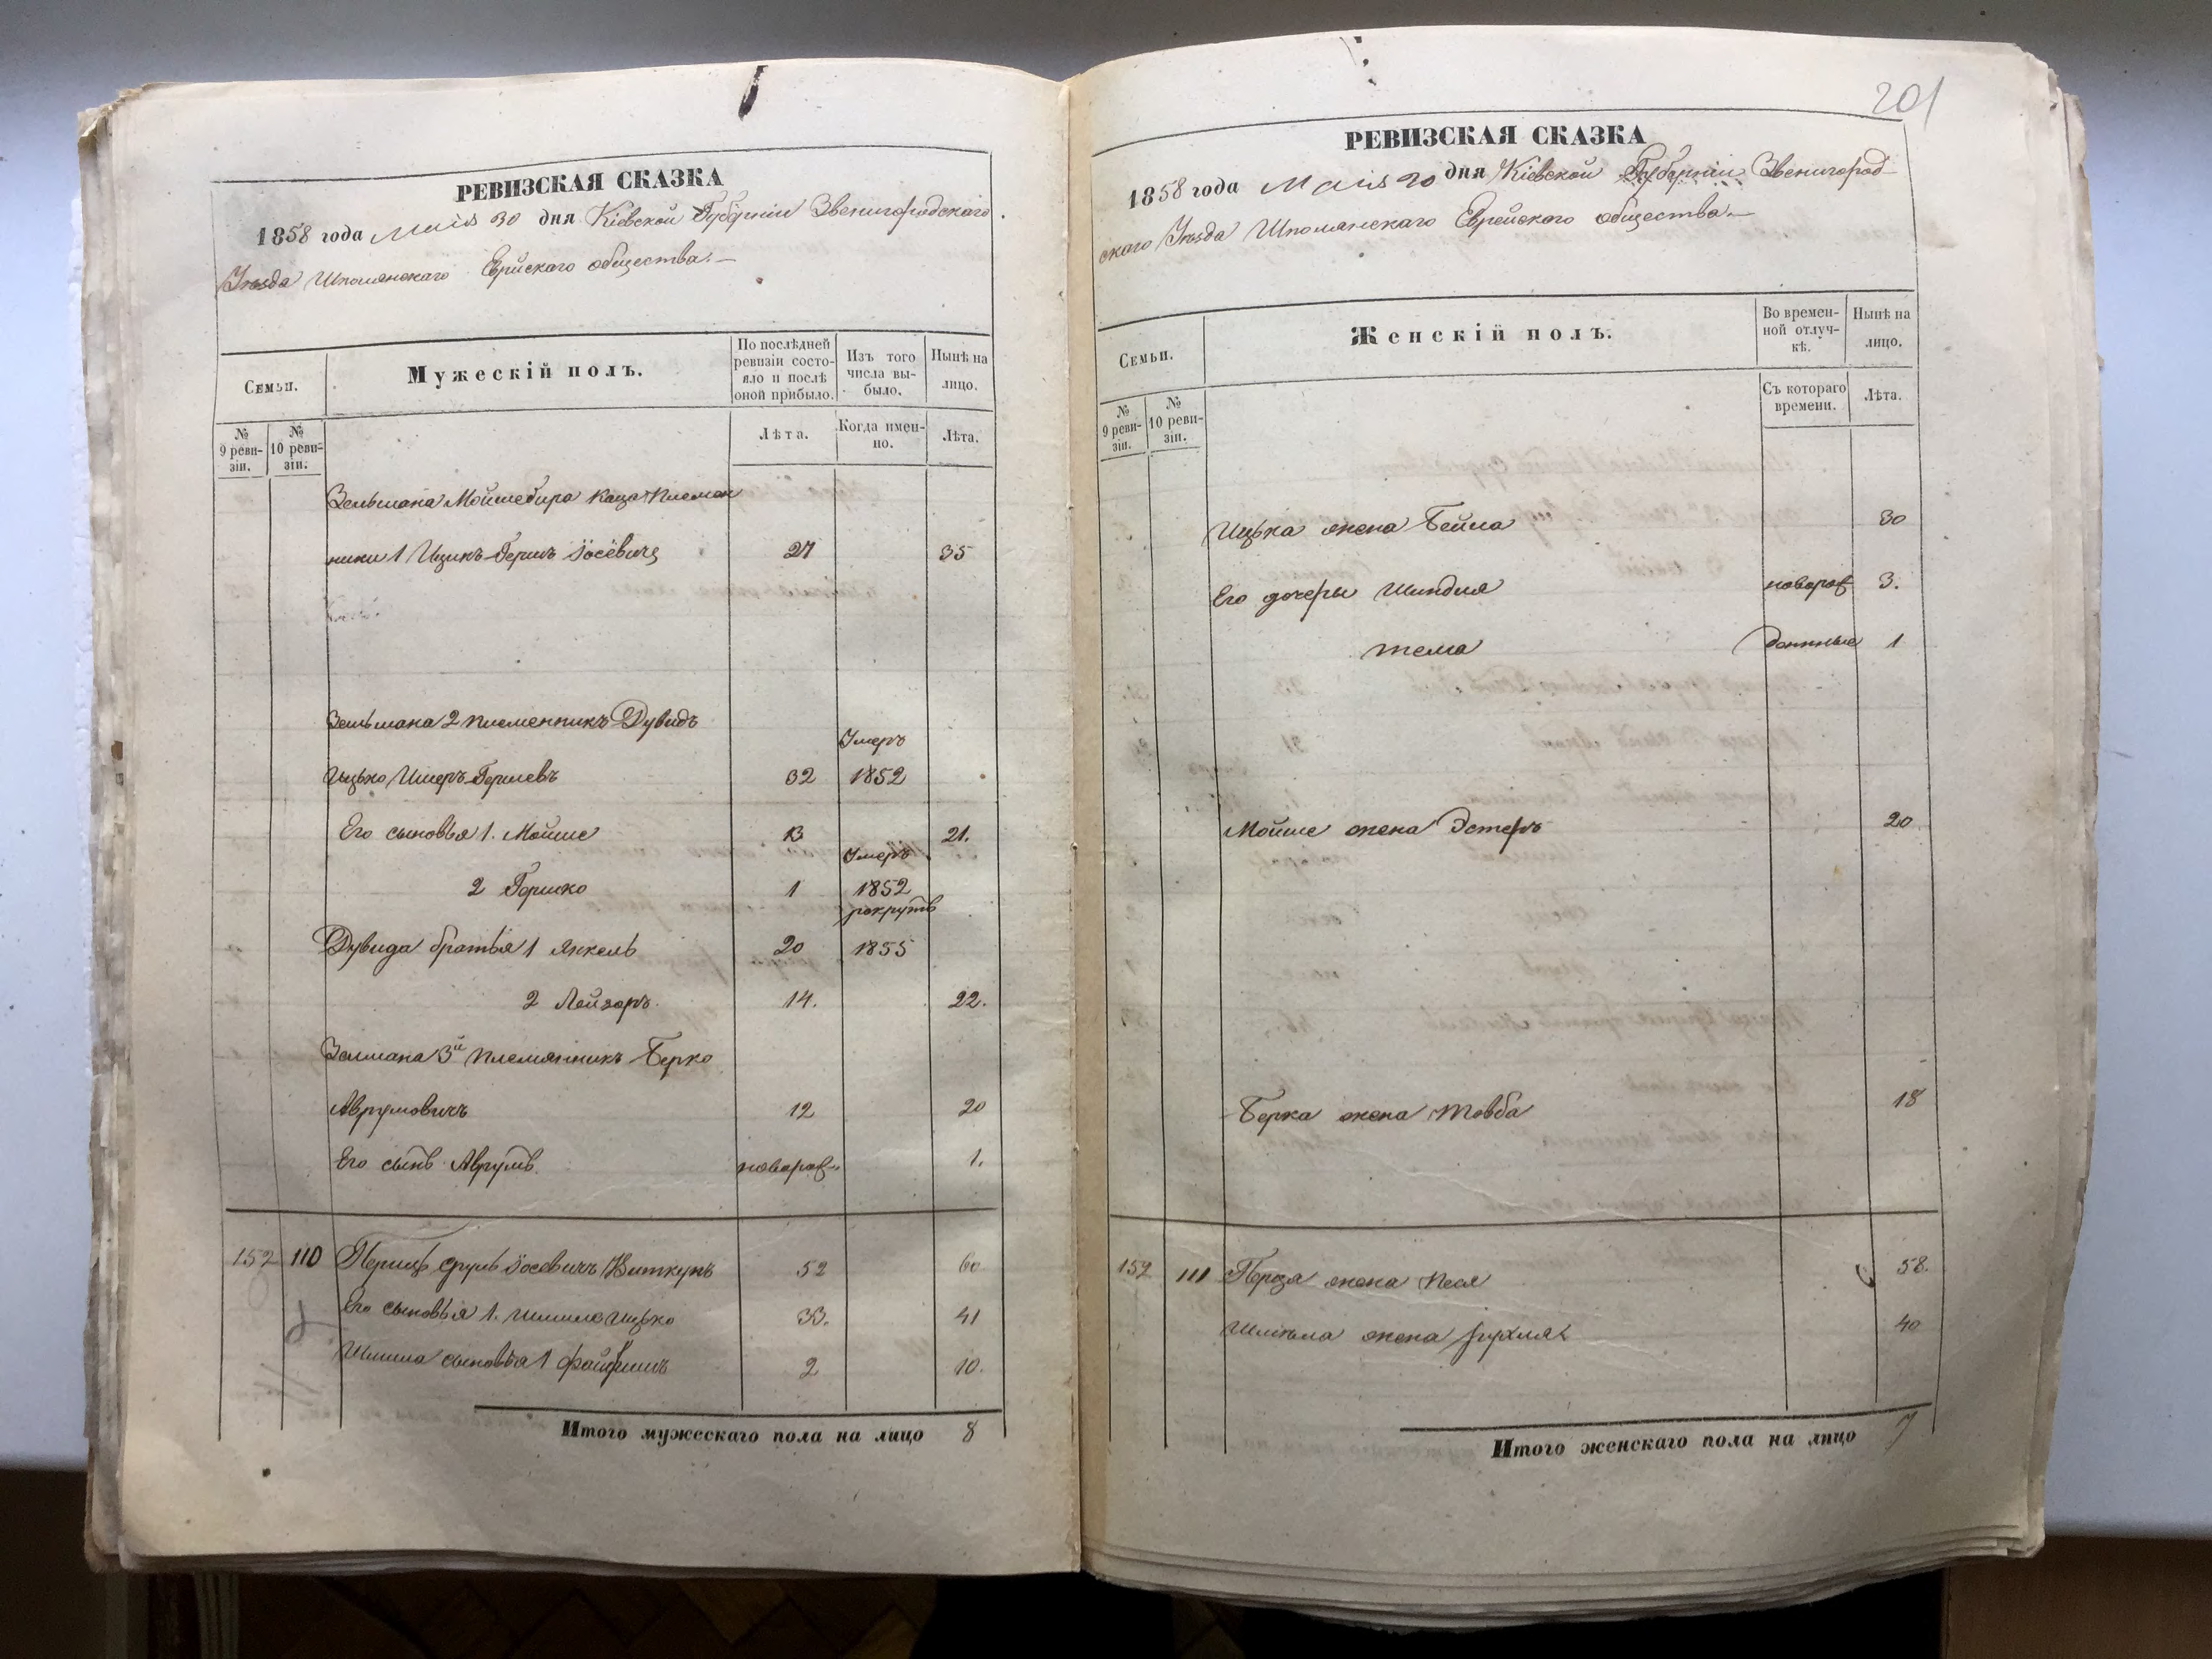 РЕВИЗСКАЯ СКАЗКА
1858 года Маія 30 дня Кіевской Губерніи Звенигородскаго
Уѣзда Шполянскаго Еврйскаго общества.—
Семьи.
Мужескій полъ.
По послѣдней ревизіи состояло и послѣ оной прибыло.
Изъ того числа выбыло.
Нынѣ на лицо.
№ 9 ревизіи.
№ 10 ревизіи.
Лѣта.
Когда именно.
Лѣта.
Зельмана Мойшебира Каца племян
ники 1 Ицикъ-Гершъ Іосёвичъ 27 35
Зельмана 2 племенникъ Дувидъ
Умеръ
Ицько Гершевъ 32 1852
Его сыновья 1. Мойше 13 21.
Умеръ
2 Гершко 1 1852
рекрутъ
Дувида братья 1 Янкель 20 1855
2 Лейзоръ 14. 22.
Зелмана 3й племянникъ Берко
Аврумовичъ 12 20
Его сынъ Аврумъ. новорож 1.
152 110 Перецъ Сруль Іосевичъ Виткупъ 52 60
Его сыновья 1. Шмиле Ицько 33. 41
Шмила сыновья 1 Файвишъ 2 10.
Итого мужескаго пола на лицо 8
201
РЕВИЗСКАЯ СКАЗКА
1858 года Маія 30 дня Кіевской Губерніи Звенигород
скаго Уѣзда Шполянскаго Еврейскаго общества.—
Семьи.
Женскій полъ.
Во временной отлучкѣ.
Нынѣ на лицо.
№ 9 ревизіи.
№ 10 ревизіи.
Съ котораго времени.
Лѣта.
Ицька жена Бейла 30
Его дочеры Шиндля новорож 3.
тема денные 1
Мойше жена Эстеръ 20
Берка жена Товба 18
152 111 Перца жена Песя 58.
Шмилма жена Рухля 40
Итого женскаго пола на лицо 7